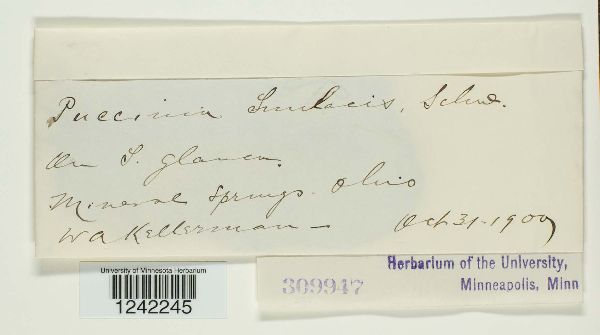 Puccinia Smilacis, Schw.
On S. glauca.
Mineral Springs. Ohio
W A Kellerman — Oct 31-1900
University of Minnesota Herbarium
1242245
309947
Herbarium of the University,
Minneapolis, Minn